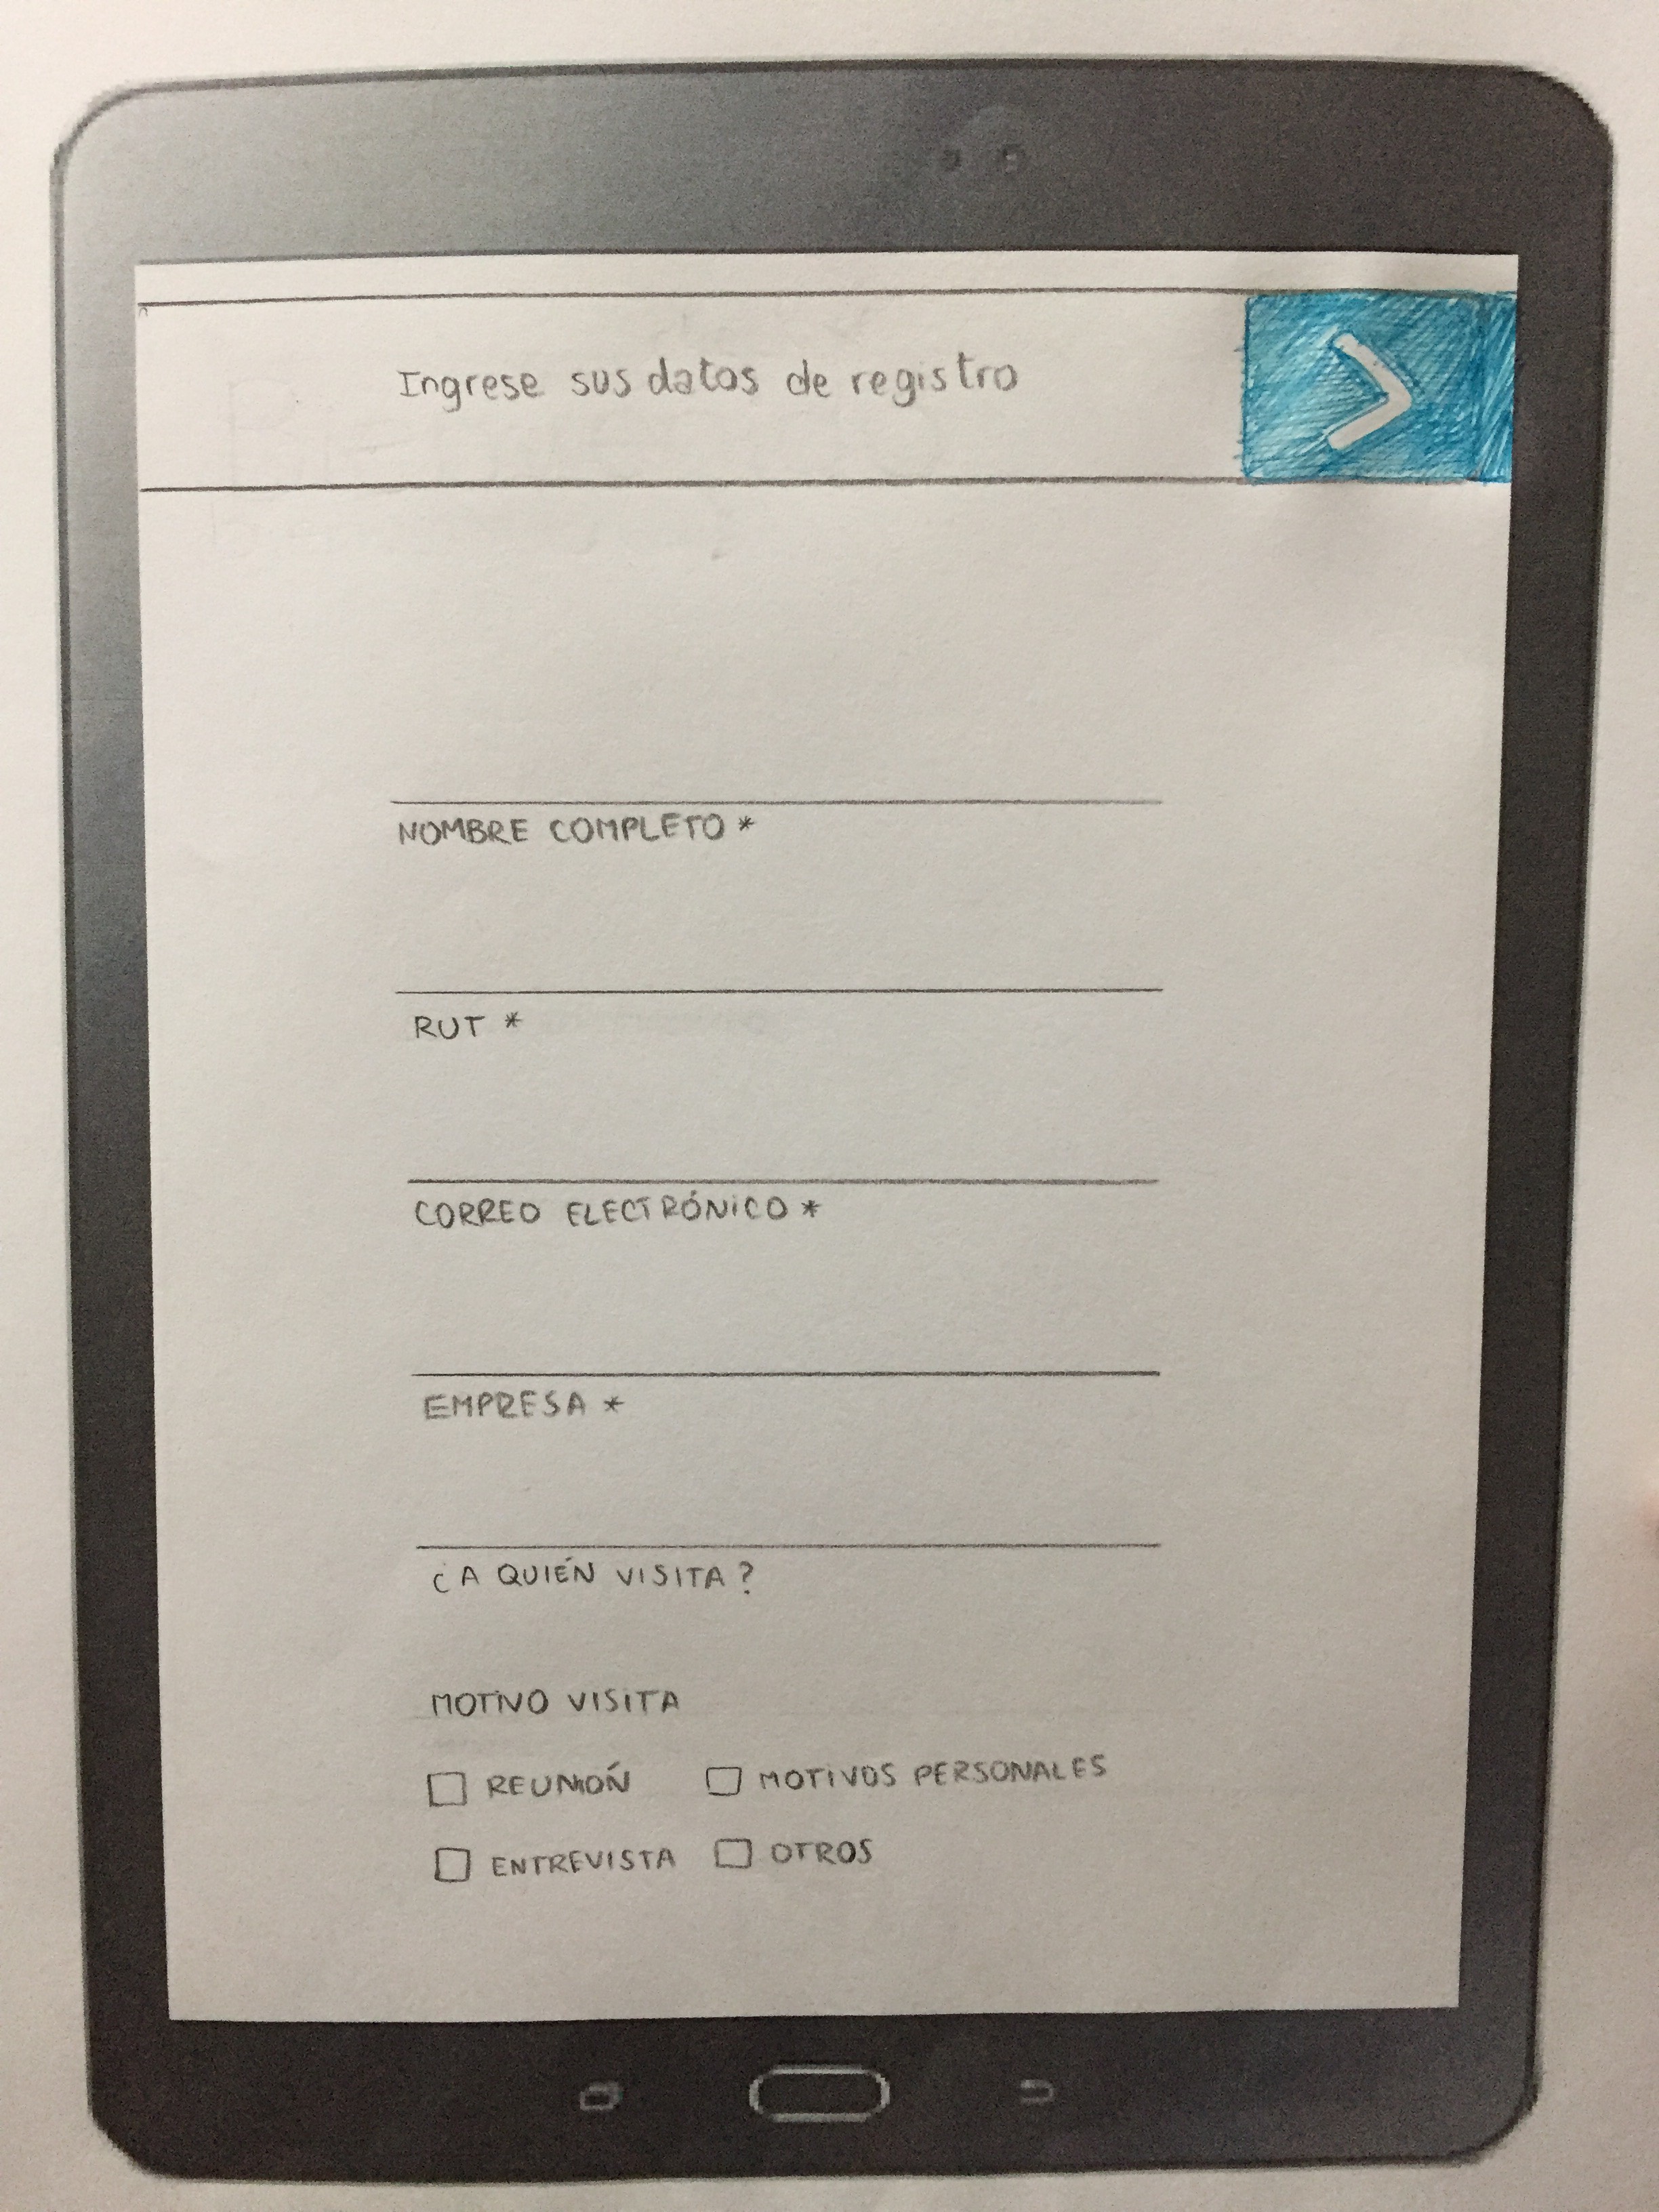 Ingrese sus datos de registro
NOMBRE COMPLETO *
RUT *
CORREO ELECTRÓNICO *
EMPRESA *
¿A QUIÉN VISITA?
MOTIVO VISITA
REUNIÓN MOTIVOS PERSONALES
ENTREVISTA OTROS